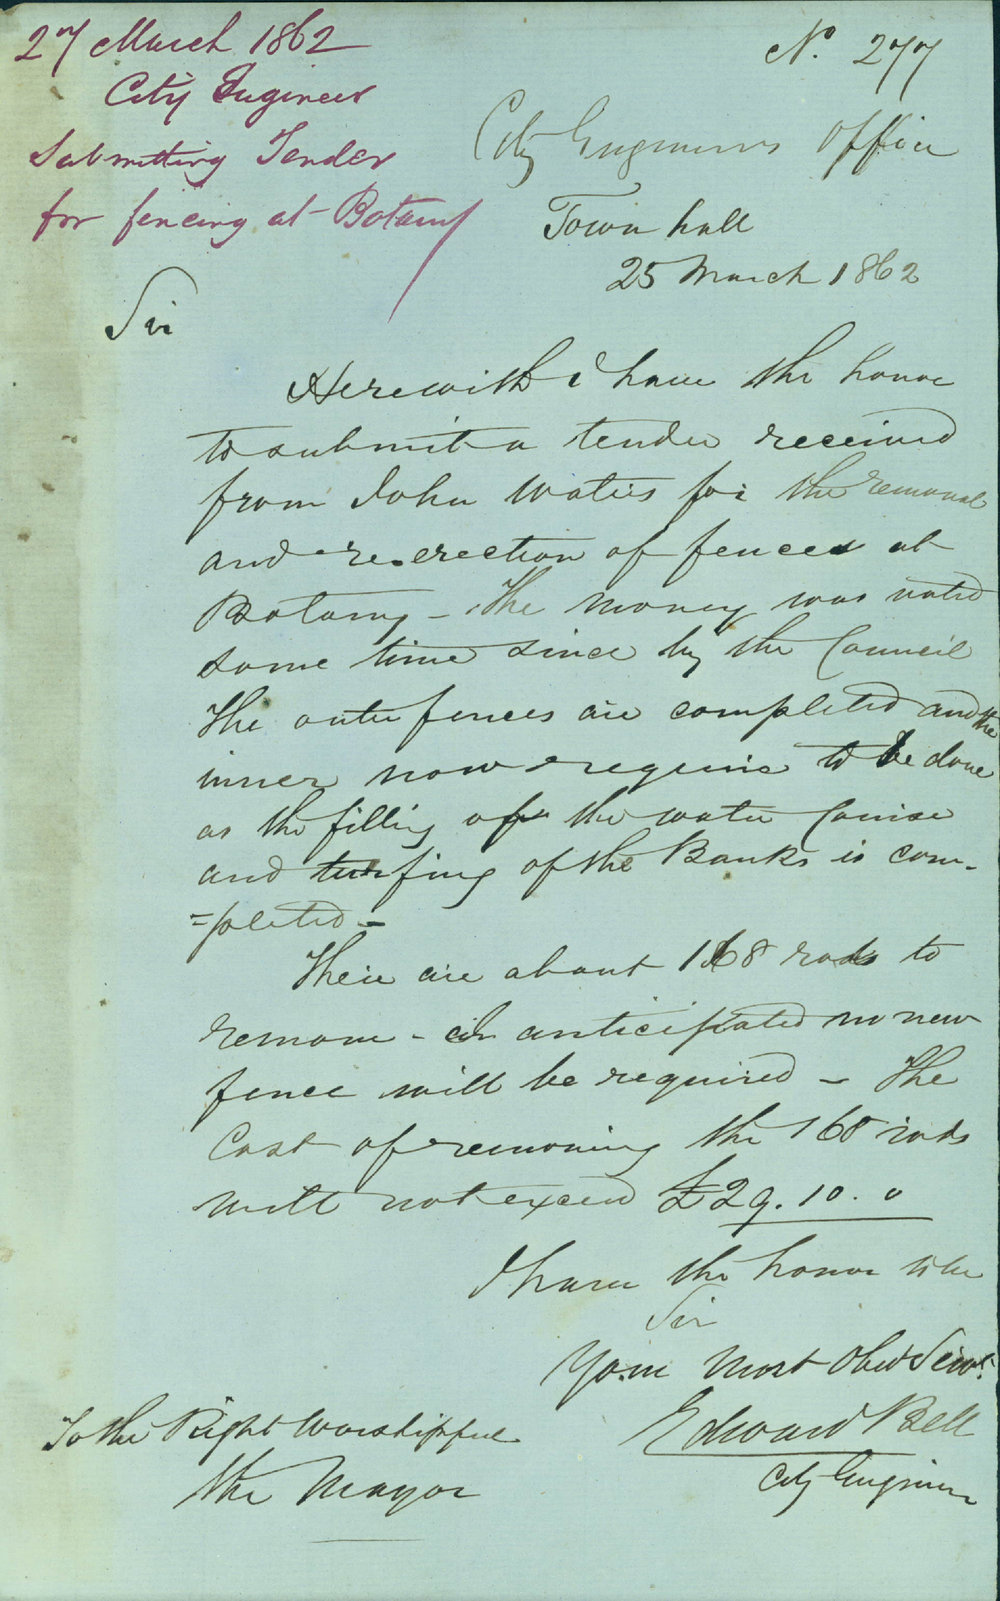 27 March 1862
City Engineer
Submitting Tender
for fencing at Botany
No. 277
City Engineers Office
Town hall
25 March 1862
Sir
Herewith I have the honor
to submit a tender received
from John Waters for the removal
and re-erection of fences at
Botany - The money was voted
some time since by the Council
The outer fences are completed and the
inner now require to be done
as the filling of the water Course
and turfing of the Banks is com-
=pleted -
There are about 168 rods to
remove - it is anticipated no new
fence will be required - The
Cost of removing the 168 rods
will not exceed £29.10.0
I have the honor to be
Sir
Your Most Obed Servt.
Edward Bell
City Engineer
To the Right Worshipful
the Mayor